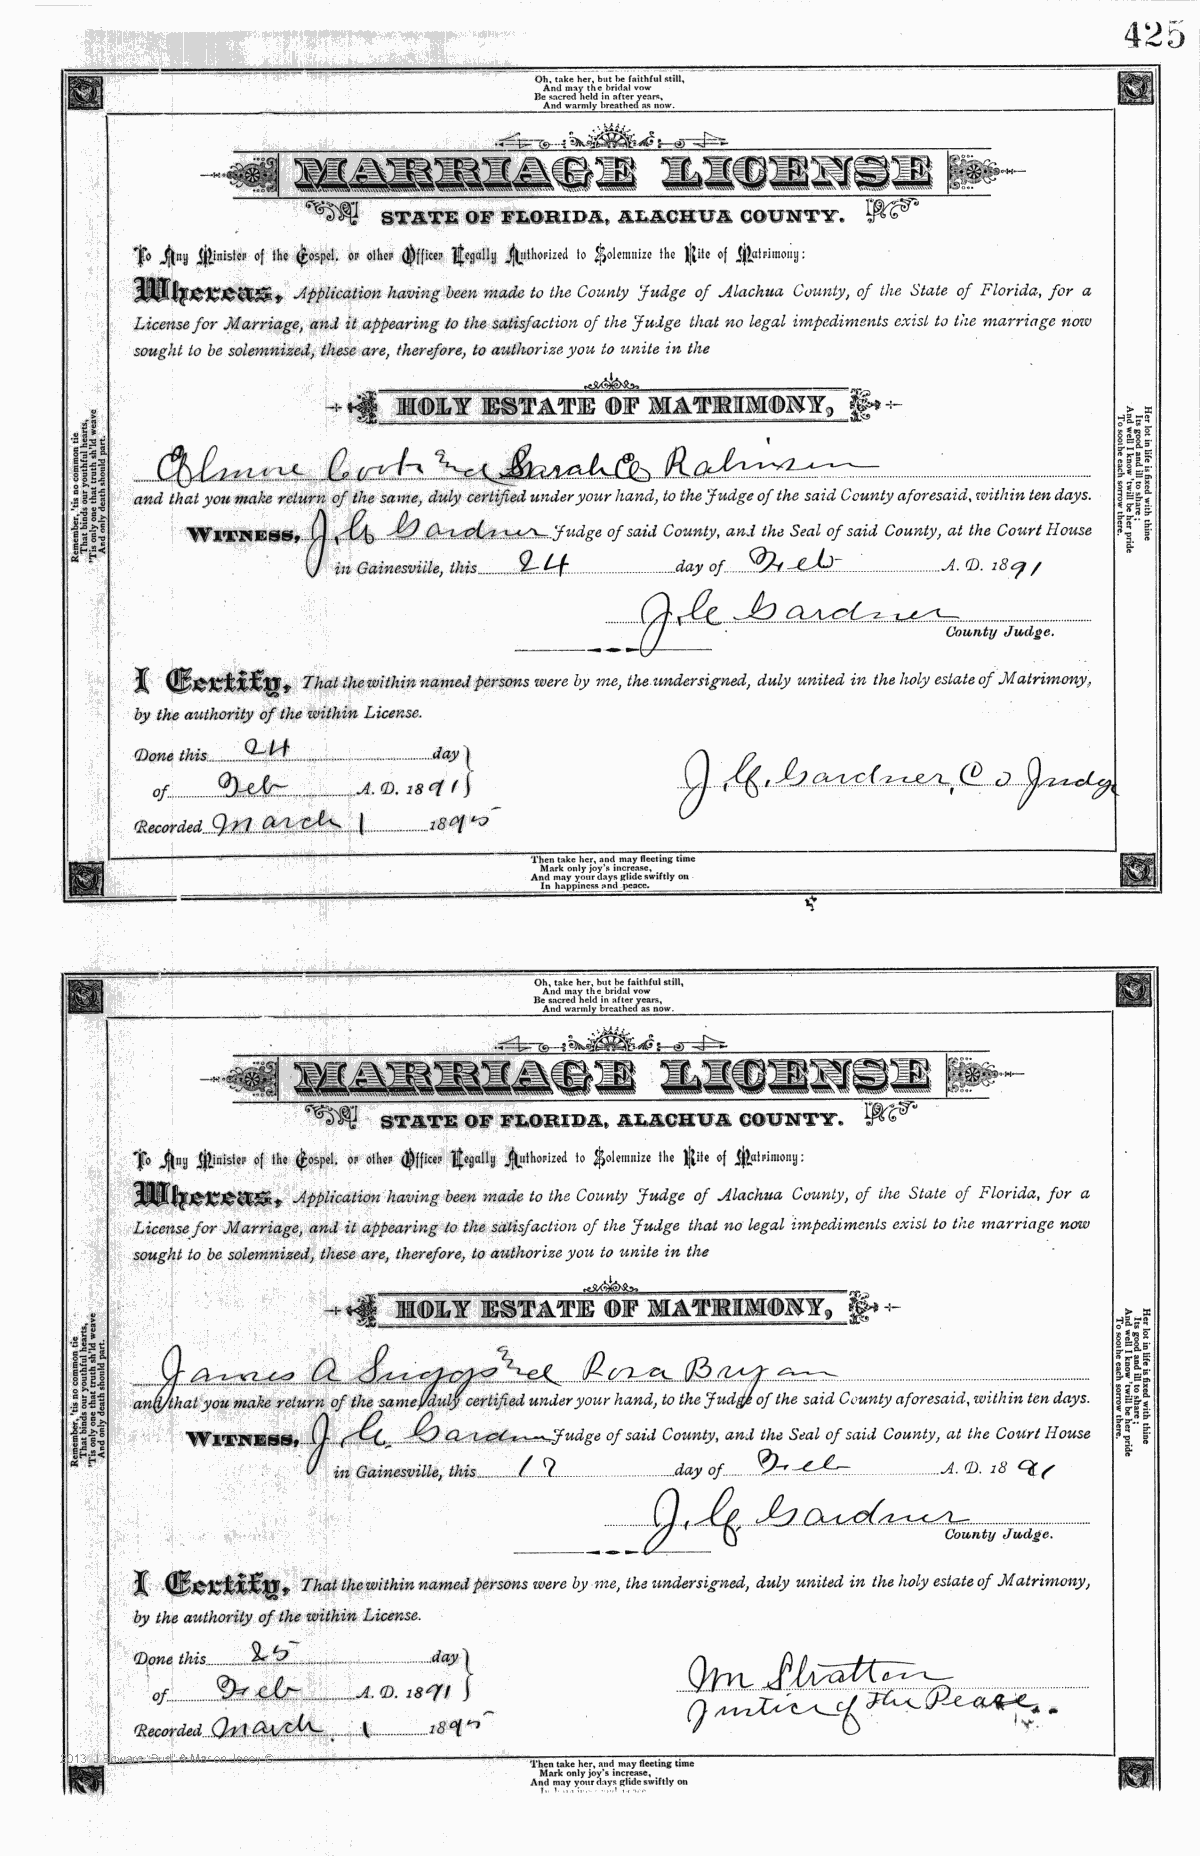 425
Oh, take her, but be faithful still,
And may the bridal vow
Be sacred held in after years,
And warmly breathed as now.
MARRIAGE LICENSE
STATE OF FLORIDA, ALACHUA COUNTY.
To Any Minister of the Gospel, or other Officer Legally Authorized to Solemnize the Rite of Matrimony:
Whereas, Application having been made to the County Judge of Alachua County, of the State of Florida, for a
License for Marriage, and it appearing to the satisfaction of the Judge that no legal impediments exist to the marriage now
sought to be solemnized, these are, therefore, to authorize you to unite in the
HOLY ESTATE OF MATRIMONY,
Elmore and Sarah
and that you make return of the same, duly certified under your hand, to the Judge of the said County aforesaid, within ten days.
WITNESS, J. C. Gardner Judge of said County, and the Seal of said County, at the Court House
in Gainesville, this 24 day of Feb A. D. 1891
J. C. Gardner
County Judge.
I Certify, That the within named persons were by me, the undersigned, duly united in the holy estate of Matrimony,
by the authority of the within License.
Done this 24 day
of Feb A. D. 1891
J. C. Gardner, Co Judge
Recorded March 1 1895
Then take her, and may fleeting time
Mark only joy's increase,
And may your days glide swiftly on
In happiness and peace.
Remember, 'tis no common tie
That binds our youthful hearts,
'Tis only one that truth sh'ld weave
And only death should part.
Her lot in life is fixed with thine
Its good and ill to share;
And well I know 'twill be her pride
To soothe each sorrow there.
Oh, take her, but be faithful still,
And may the bridal vow
Be sacred held in after years,
And warmly breathed as now.
MARRIAGE LICENSE
STATE OF FLORIDA, ALACHUA COUNTY.
To Any Minister of the Gospel, or other Officer Legally Authorized to Solemnize the Rite of Matrimony:
Whereas, Application having been made to the County Judge of Alachua County, of the State of Florida, for a
License for Marriage, and it appearing to the satisfaction of the Judge that no legal impediments exist to the marriage now
sought to be solemnized, these are, therefore, to authorize you to unite in the
HOLY ESTATE OF MATRIMONY,
James A Suggs and Rosa Bryan
and that you make return of the same, duly certified under your hand, to the Judge of the said County aforesaid, within ten days.
WITNESS, J. C. Gardner Judge of said County, and the Seal of said County, at the Court House
in Gainesville, this day of Feb A. D. 1891
J. C. Gardner
County Judge.
I Certify, That the within named persons were by me, the undersigned, duly united in the holy estate of Matrimony,
by the authority of the within License.
Done this 25 day
of Feb A. D. 1891
Wm Stratton
Justice of the Peace
Recorded March 1 1895
Then take her, and may fleeting time
Mark only joy's increase,
And may your days glide swiftly on
Remember, 'tis no common tie
That binds our youthful hearts,
'Tis only one that truth sh'ld weave
And only death should part.
Her lot in life is fixed with thine
Its good and ill to share;
And well I know 'twill be her pride
To soothe each sorrow there.